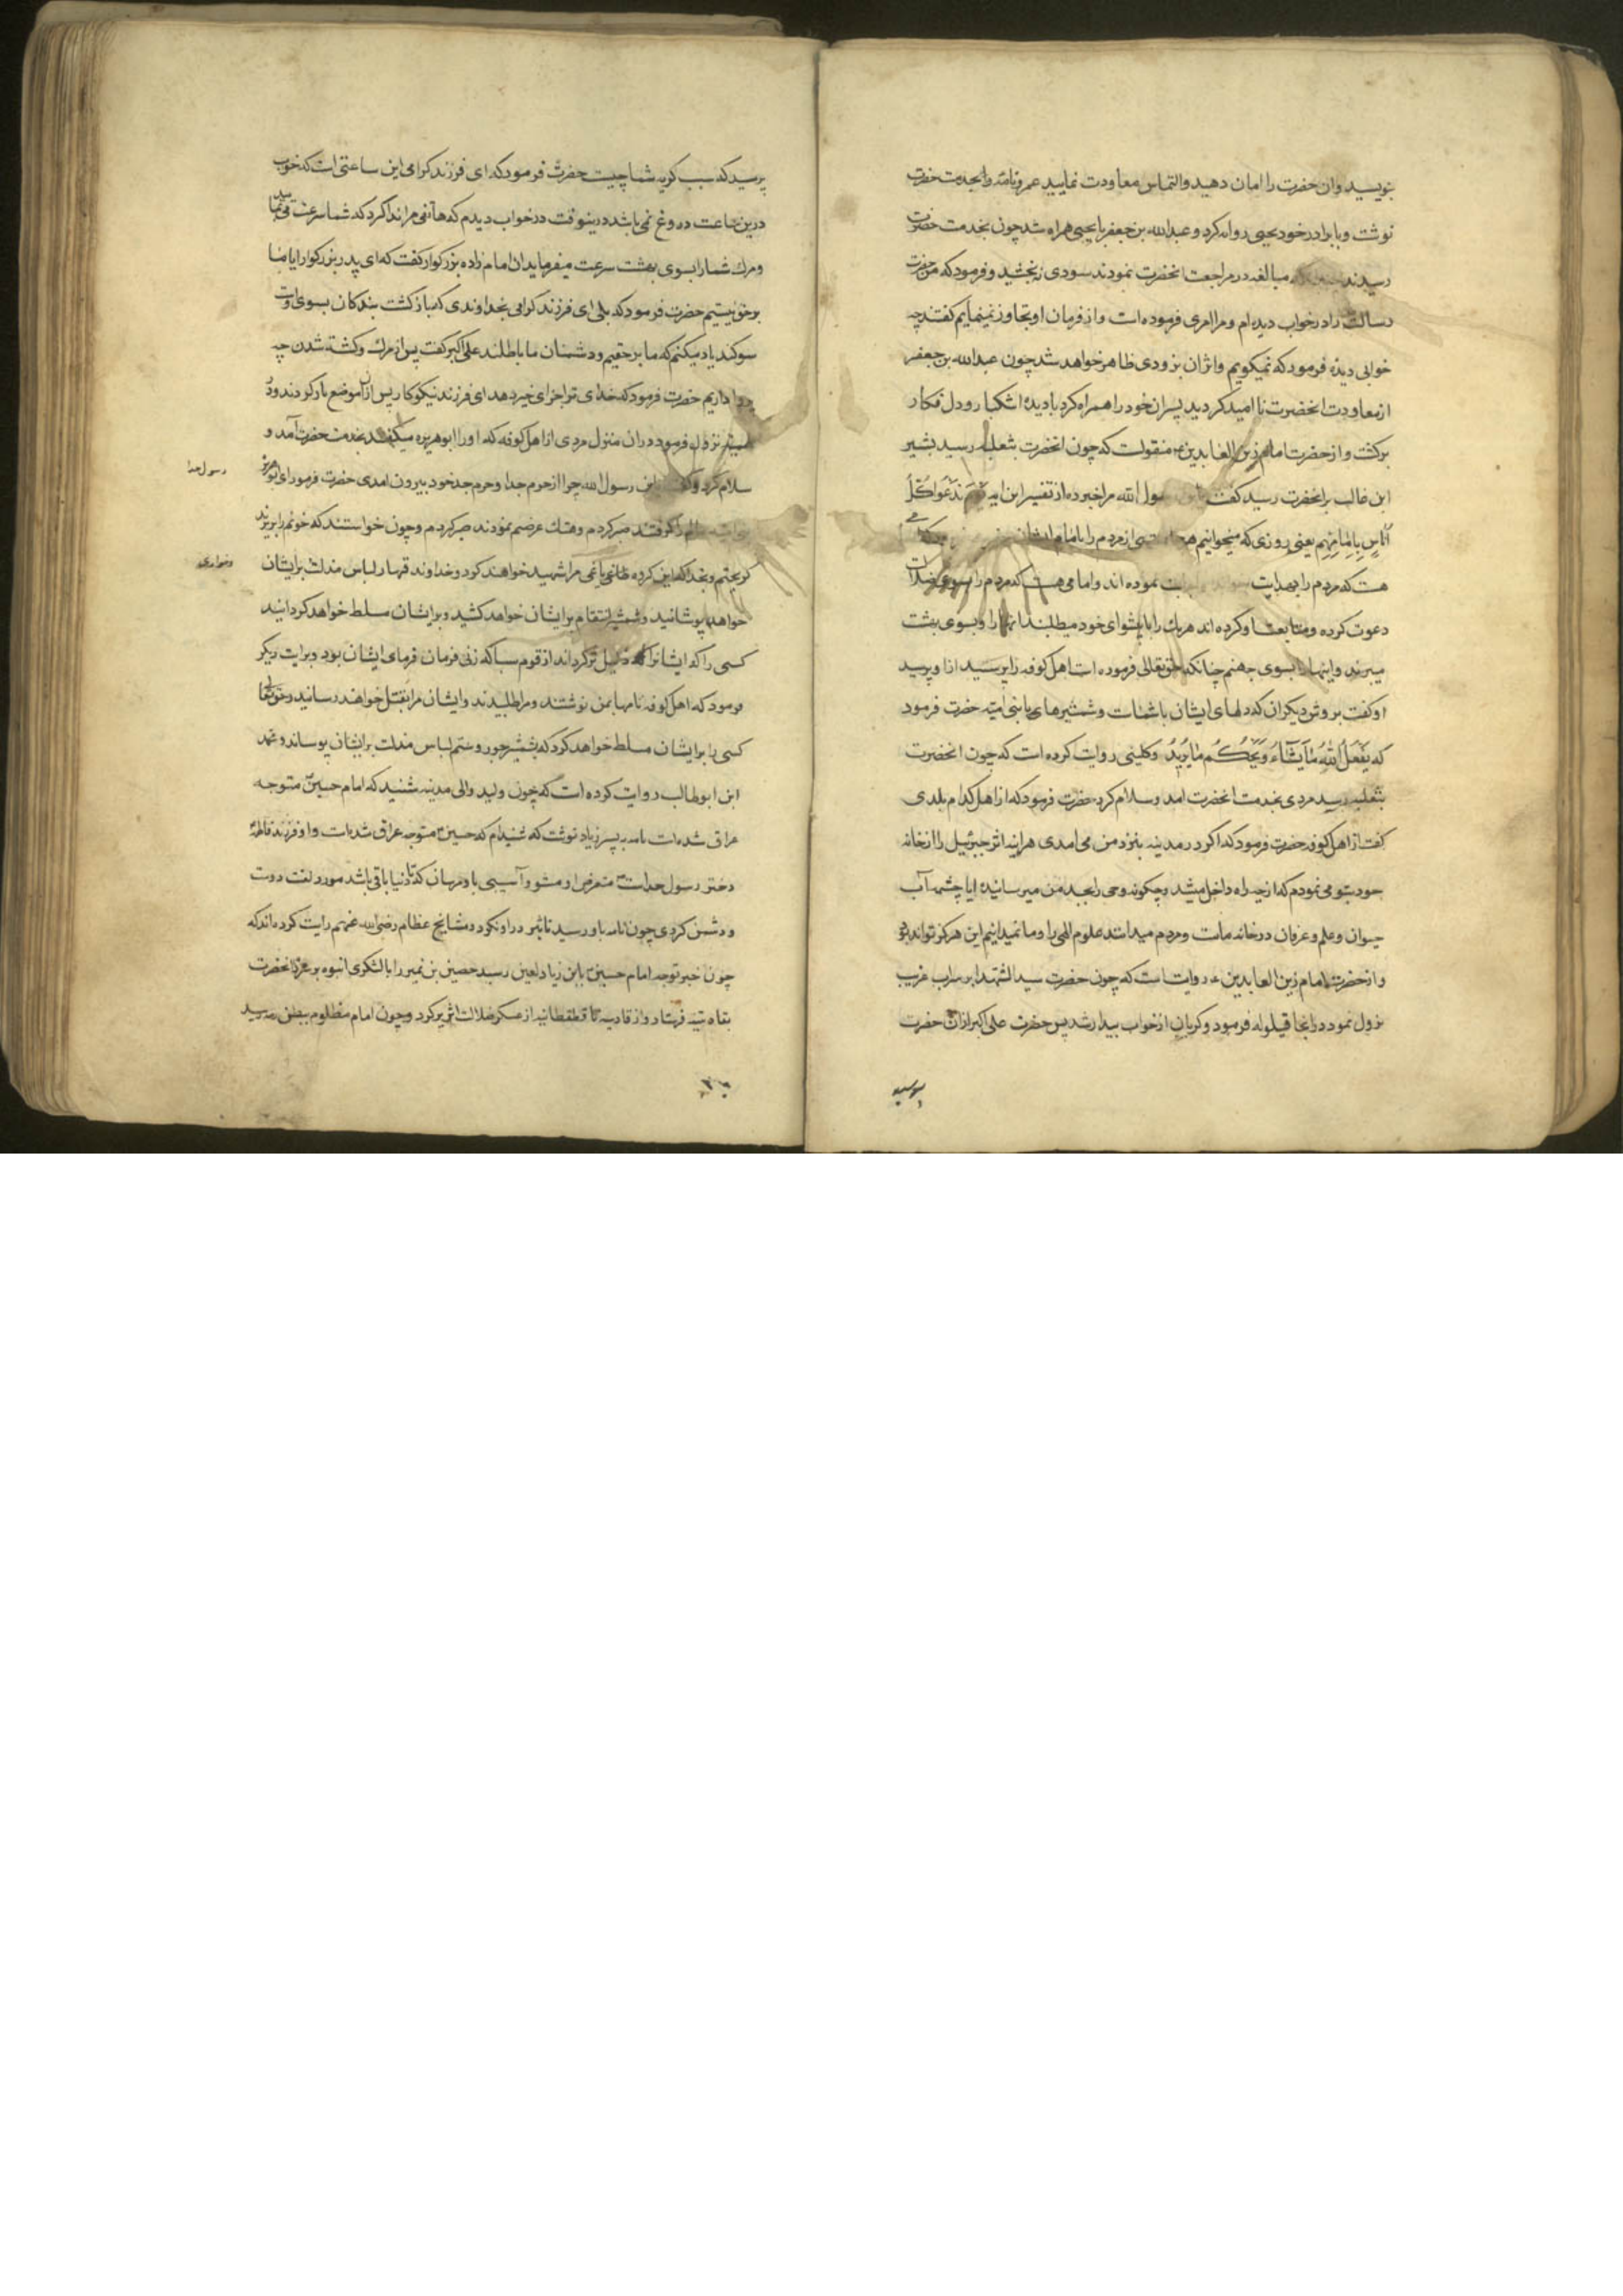 بنویسید وان حضرت را امان دهید والتماس معاودت نمایید عمرو نامه را بخدمت حضرت
نوشت و با برادر خود یحیی روانه کرد و عبدالله بن جعفر با یحیی همراه شد چون بخدمت حضرت
رسیدند مبالغه در مراجعت انحضرت نمودند سودی نبخشید و فرمود که من حضرت
رسالت را در خواب دیده ام و مرا امری فرموده است و از فرمان او تجاوز نمینمایم گفتند چه
خوابی دیدهٔ فرمود که نمیگویم و اثر ان بزودی ظاهر خواهد شد چون عبدالله بن جعفر
از معاودت انحضرت نا امید گردید پسران خود را همراه کرد با دیدهٔ اشکبار و دل فکار
برکشت و از حضرت امام زین العابدین منقولست که چون انحضرت بثعلبه رسید بشیر
ابن غالب بر انحضرت رسید گفت یابن رسول الله مرا خبر ده از تفسیر این ایه یَوْمَ نَدْعُوا کُلَّ
اُنَاسٍ بِاِمَامِهِم یعنی روزی که میخوانیم هر از مردم را با امام ایشان
هست که مردم را بهدایت نموده اند و امامی هست که مردم را بسوی ضلالت
دعوت کرده و متابعت او کرده اند هر یک را با پیشوای خود میطلبند انها را بسوی بهشت
میبرند و اینها را بسوی جهنم چنانکه حق تعالی فرموده است اهل کوفه را پرسید از او پرسید
او گفت بروش دیگران که دلهای ایشان با شماست و شمشیرهای با بنی امیه حضرت فرمود
که یَفْعَلُ اللهُ مَا یَشَاءُ وَ یَحْکُمُ مَا یُرِیدُ و کلینی روایت کرده است که چون انحضرت
بثعلبه رسید مردی بخدمت انحضرت امد و سلام کرد حضرت فرمود که از اهل کدام بلدی
گفت از اهل کوفه حضرت فرمود که اگر در مدینه بنزد من می امدی هراینه اثر جبرئیل را از خانه
خود بتو می نمودم که از چه راه داخل میشد و چگونه وحی را بجد من میرسانید ایا چشمه آب
حیوان و علم و عرفان در خانه ماست و مردم میدانند علوم الهی را و ما نمیدانیم این هرگز تواند بود
و از حضرت امام زین العابدین ع روایت است که چون حضرت سید الشهدا بر سراب غریب
نزول نمود در انجا قیلوله فرمود و گریان از خواب بیدار شد پس حضرت علی اکبر از ان حضرت
پرسید
پرسید که سبب گریه شما چیست حضرت فرمود که ای فرزند گرامی این ساعتی است که خواب
درین ساعت دروغ نمی باشد درینوقت در خواب دیدم که هاتفی مرا ندا کرد که شما سرعت می نمایید
و مرک شما را بسوی بهشت سرعت میفرماید ان امام زاده بزرگوار گفت که ای پدر بزرگوار ایا ما
بر حق نیستیم حضرت فرمود که بلی ای فرزند گرامی بخداوندی که بازگشت بندگان بسوی اوست
سوگند یاد میکنم که ما بر حقیم و دشمنان ما باطلند علی اکبر گفت پس از مرک و کشته شدن چه
پروا داریم حضرت فرمود که خدای ترا جزای خیر دهد ای فرزند نیکوکار پس از ان موضع بار کردند و در
نزول فرمود در ان منزل مردی از اهل کوفه که او را ابوهریره میگفتند بخدمت حضرت آمد و
سلام کرد و گفت یابن رسول الله چرا از حرم خدا و حرم جد خود بیرون امدی حضرت فرمود ای ابوهریره
گرفتند صبر کردم و هتک عرضم نمودند صبر کردم و چون خواستند که خونم را بریزند
گریختم و بخدا که این گروه طاغی باغی مرا شهید خواهند کرد و خداوند قهار لباس مذلت بر ایشان
خواهد پوشانید و شمشیر انتقام بر ایشان خواهد کشید و بر ایشان مسلط خواهد گردانید
کسی را که ایشانرا ذلیل تر گرداند از قوم سبا که زنی فرمان فرمای ایشان بود و بروایت دیگر
فرمود که اهل کوفه نامها بمن نوشتند و مرا طلبیدند و ایشان مرا بقتل خواهند رسانید و حق تعالی
کسی را بر ایشان مسلط خواهد کرد که بشمشیر جور و ستم لباس مذلت بر ایشان پوساند و محمد
ابن ابوطالب روایت کرده است که چون ولید والی مدینه شنید که امام حسین متوجه
عراق شده است نامه به پسر زیاد نوشت که شنیدم که حسین متوجه عراق شده است و او فرزند فاطمه
دختر رسول خداست متعرض او مشو و آسیبی باو مرسان که تا دنیا باقی باشد مورد لعنت دوست
و دشمن گردی چون نامه باو رسید تاثیر در او نکرد و مشایخ عظام رضی الله عنهم روایت کرده اند که
چون خبر توجه امام حسین بابن زیاد لعین رسید حصین بن نمیر را با لشکری انبوه بر سر راه انحضرت
بقادسیه فرستاد و از قادسیه تا قطقطانیه از عسکر ضلالت اثر پر کرد و چون امام مظلوم ببطن رمه رسید
رسول خدا
و خواری